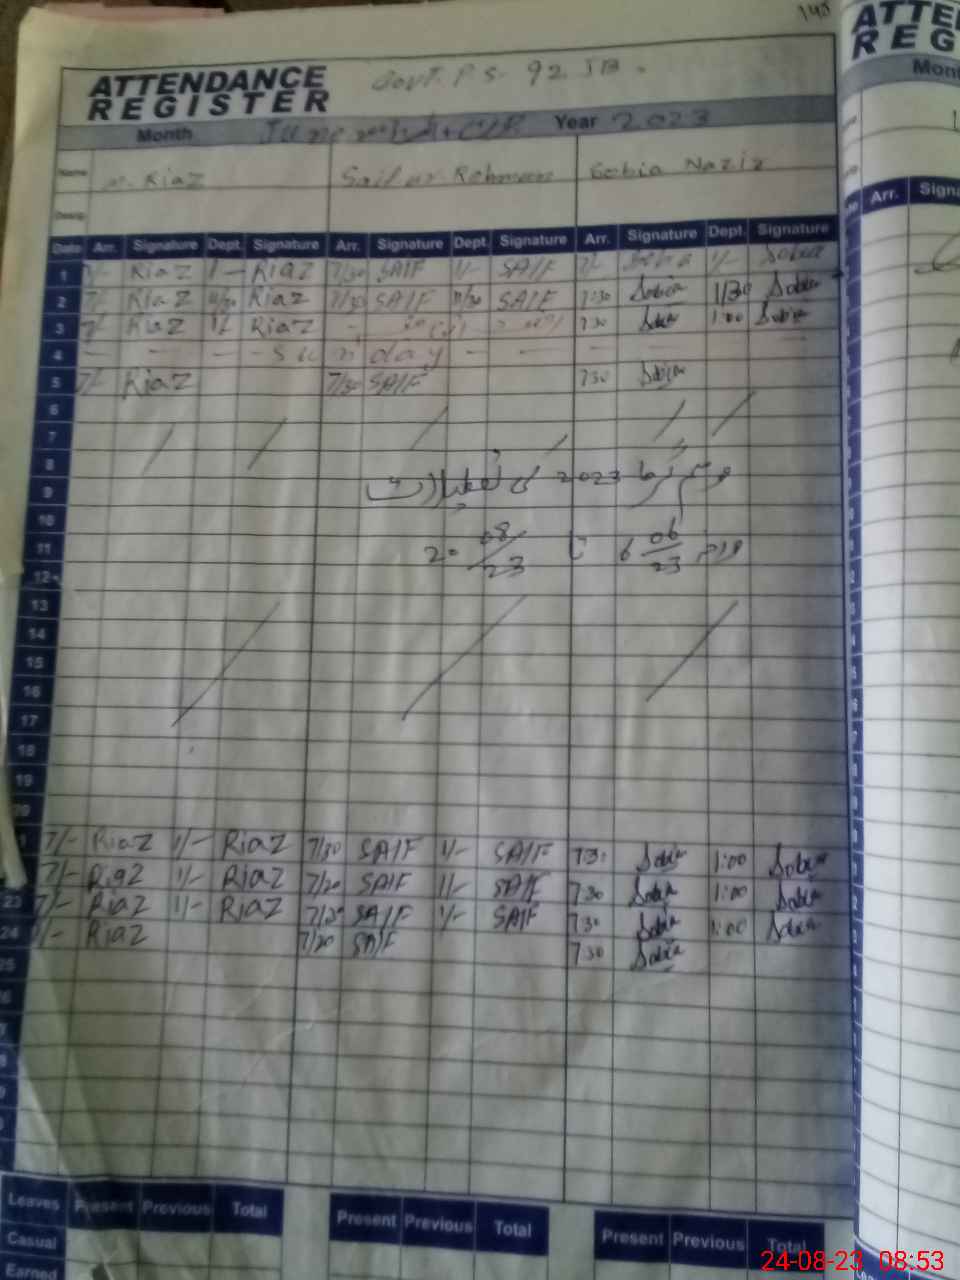 145
ATTENDANCE REGISTER
Govt. P.S. 92 JB.
ATTE
REG
Month Year 2023
Mont
Name M. Riaz Saif ur Rehman Sobia Nazir
Desig
Date Arr. Signature Dept. Signature Arr. Signature Dept. Signature Arr. Signature Dept. Signature
Arr. Signa
1 7/- RiaZ 1/- RiaZ 7/30 SAIF 1/- SAIF 7/- Sobia 1/- Sobia
2 7/- RiaZ 11/30 RiaZ 7/30 SAIF 11/30 SAIF 7:30 Sobia 11/30 Sobia
3 7/- RiaZ 1/- RiaZ 7 30 Sobia 1:00 Sobia
4 - - - - Sunday - - - - -
5 7/- RiaZ 7/30 SAIF 7 30 Sobia
6
7
8
موسم گرما 2023 کی تعطیلات
9
10
11 مورخہ 6 06/23 تا 20 08/23
12
13
14
15
16
17
18
19
20
7/- RiaZ 1/- RiaZ 7/30 SAIF 1/- SAIF 7 30 Sobia 1:00 Sobia
7/- RiaZ 1/- RiaZ 7/20 SAIF 1/- SAIF 7 30 Sobia 1:00 Sobia
23 7/- RiaZ 1/- RiaZ 7/20 SAIF 1/- SAIF 7 30 Sobia 1:00 Sobia
24 7/- RiaZ 7/20 SAIF 7 30 Sobia
25
Leaves Present Previous Total Present Previous Total Present Previous Total
Casual
Earned
24-08-23 08:53